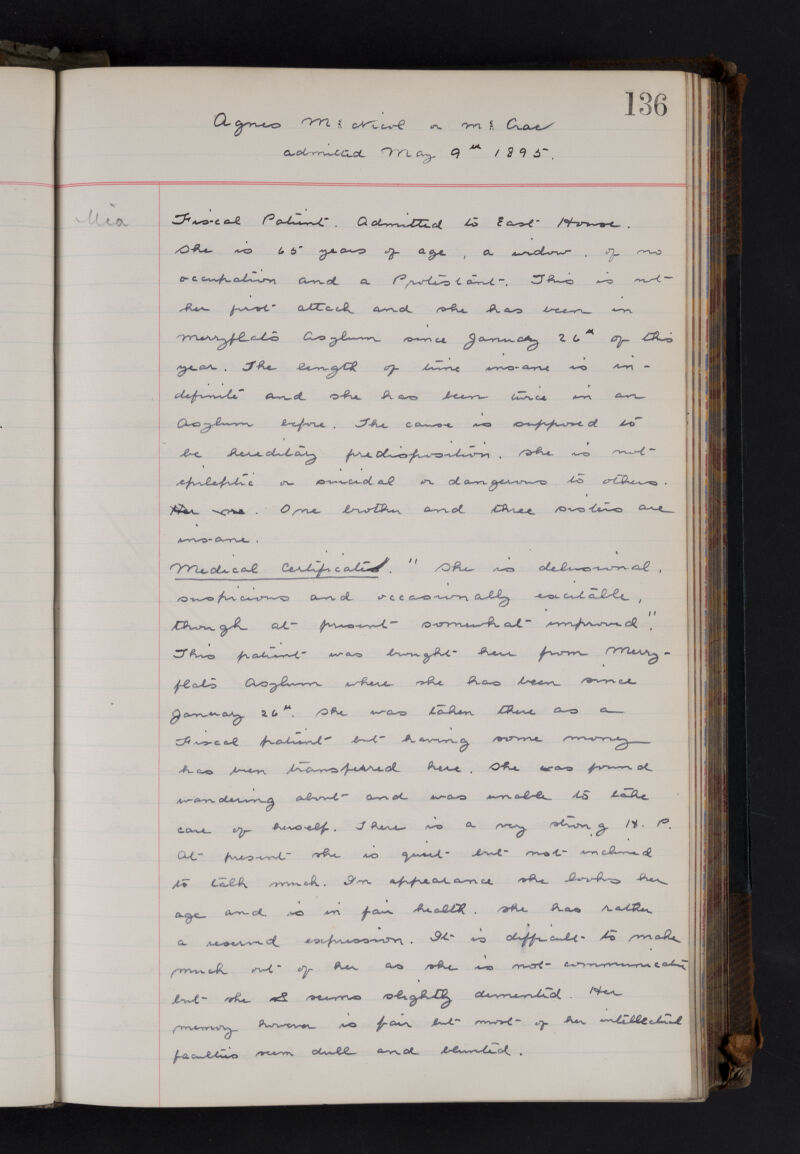 136
Agnes Mc Nicol or Mc Crae
admitted May 9th 1895.
Mia
Fiscal Patient. Admitted to East House.
She is 65 years of age, a widow, of no
occupation and a Protestant. This is not
her first attack and she has been in
Merryflats Asylum since January 26th of this
year. The length of time insane is in-
definite and she has been twice in an
Asylum before. The cause is supposed to
be hereditary predisposition. She is not
epileptic or suicidal or dangerous to others.
Her one. One brother and three sisters are
insane.
Medical Certificate. "She is delusional,
suspicious and occasionally excitable,
though at present somewhat improved".
This patient was brought here from Merry-
flats Asylum where she has been since
January 26th. She was taken there as a
Fiscal patient but having some money
has been transferred here. She was found
wandering about and was unable to take
care of herself. There is a very strong H. P.
At present she is quiet but not inclined
to talk much. In appearance she looks her
age and is in fair health. She has rather
a reserved expression. It is difficult to make
much out of her as she is not communicative
but she S seems slightly demented. Her
memory however is fair but most of her intellectual
faculties seem dull and blunted.